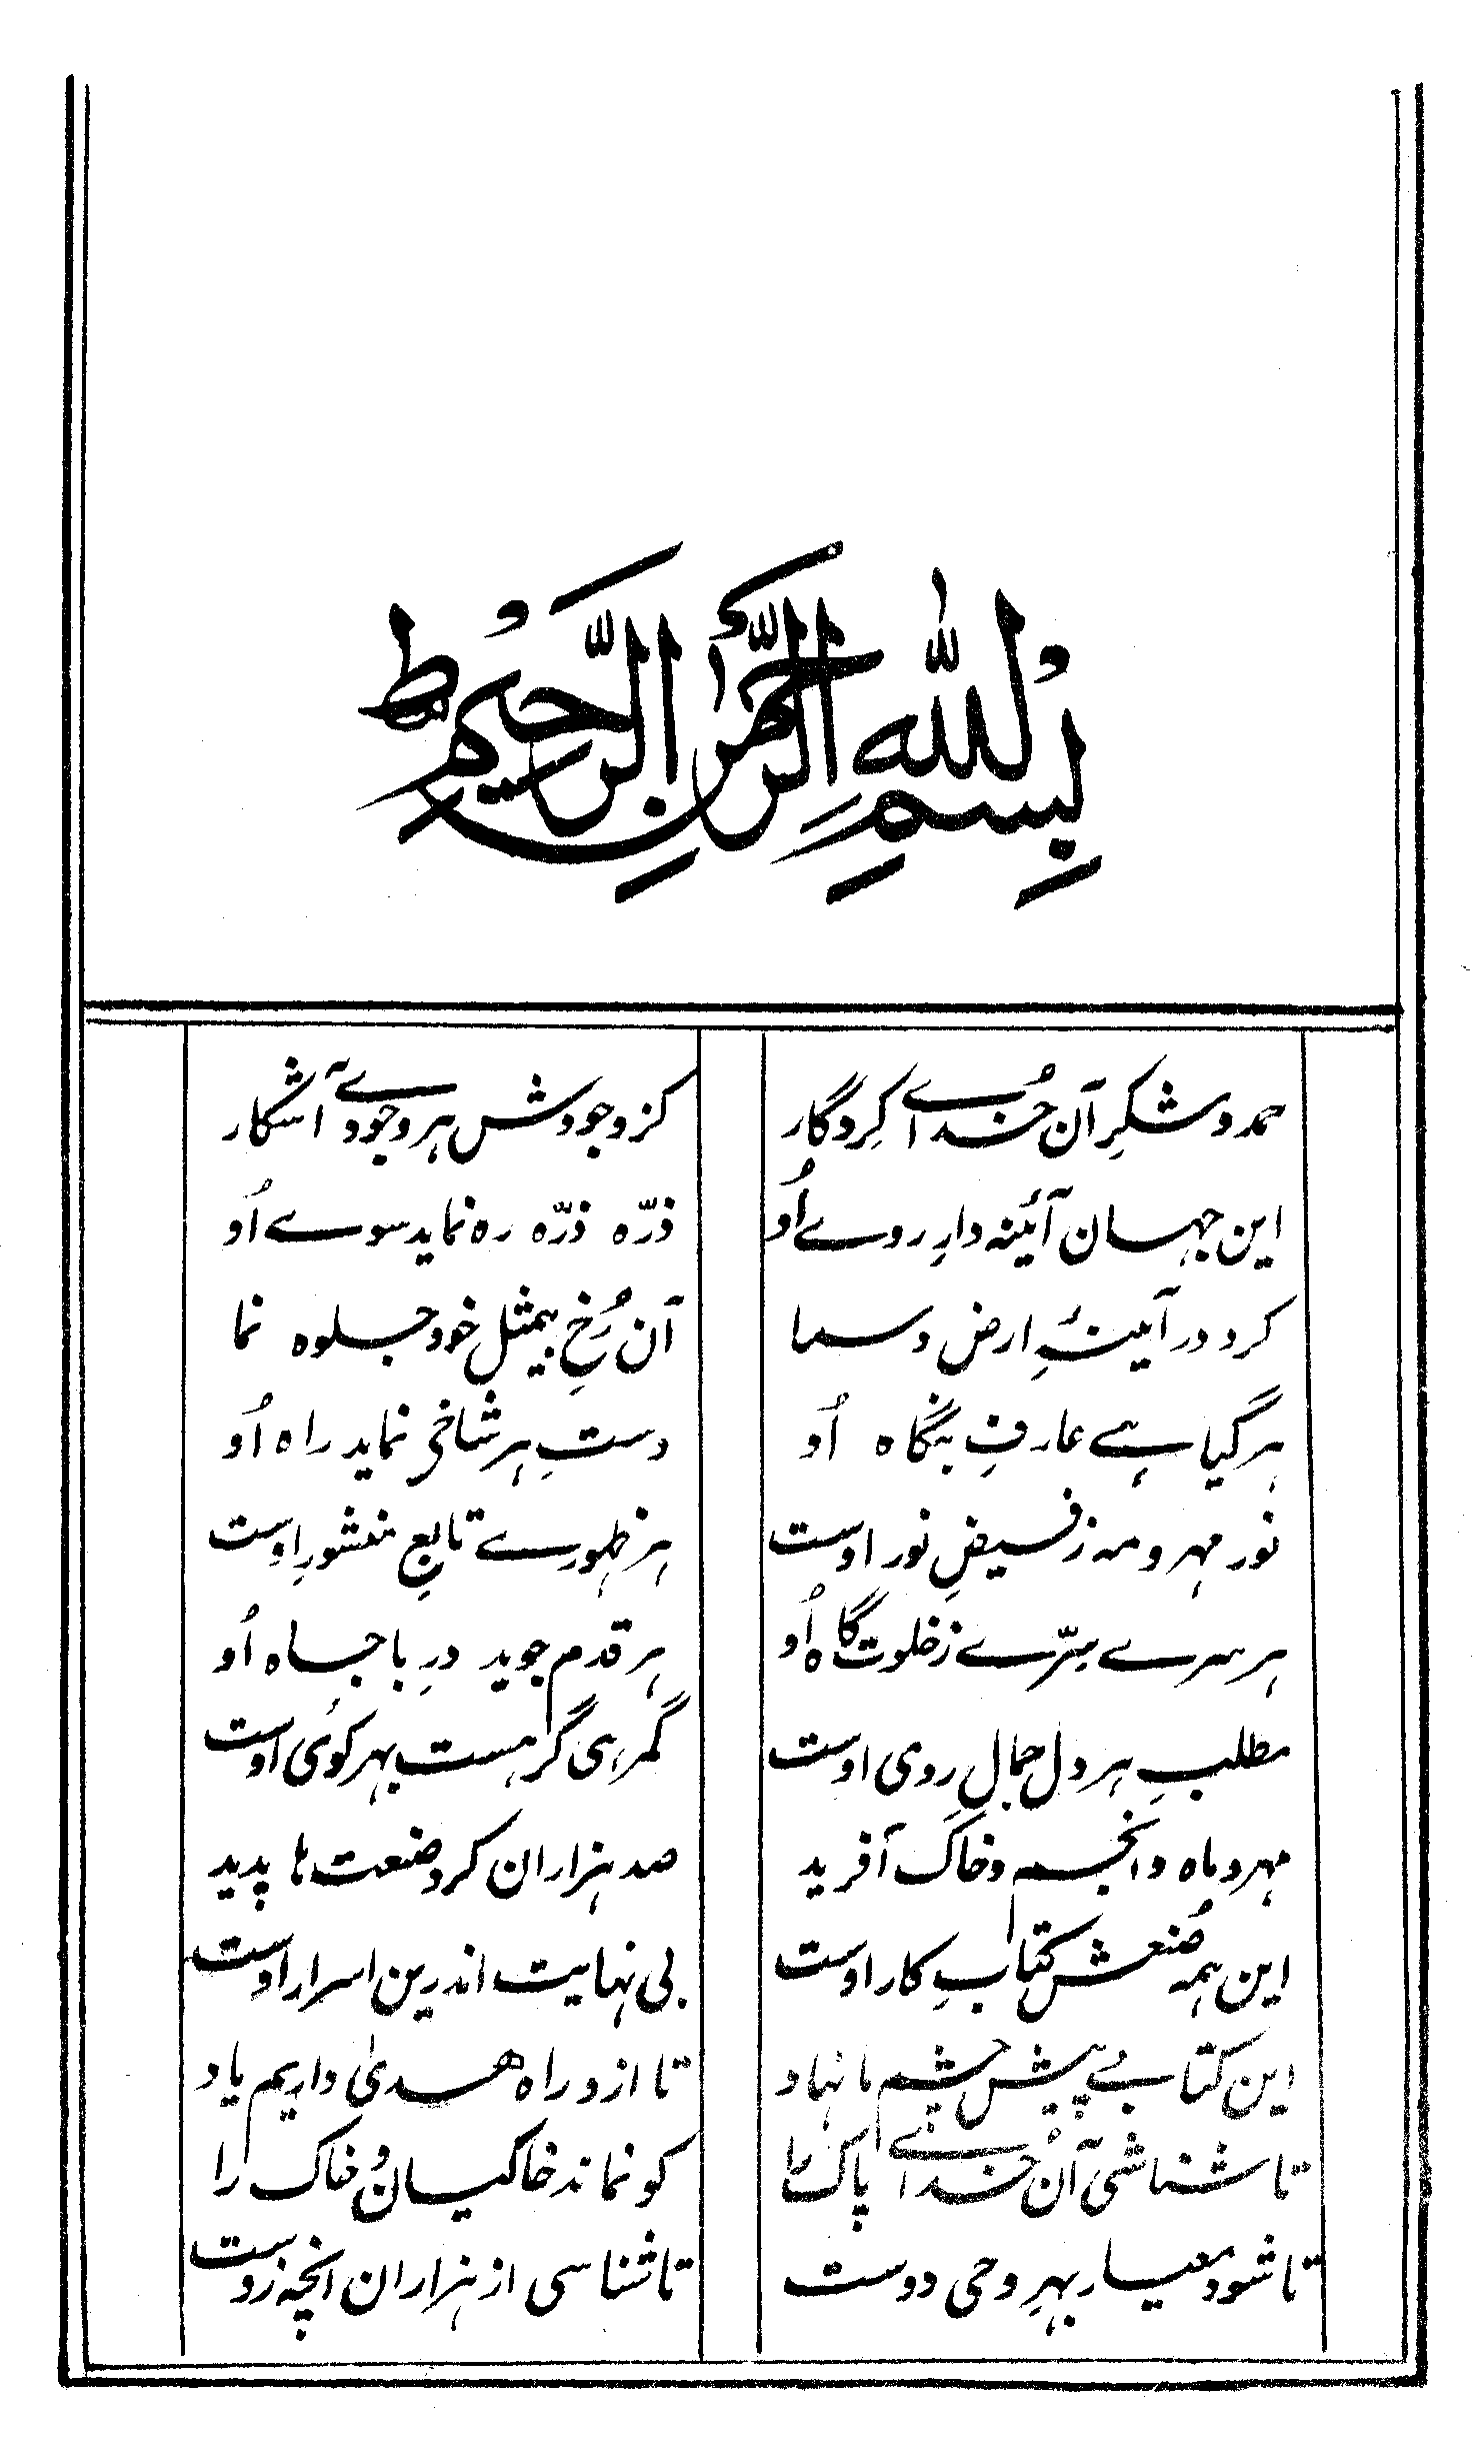 بِسْمِ اللّٰهِ الرَّحْمٰنِ الرَّحِيْمِ ط
حمد و شکرِ آن خُدائے کِردگار کز وجودش ہر وجودے آشکار
این جہان آئینہ دارِ روے اُو ذرّہ ذرّہ رہ نماید سوے اُو
کرد در آئینۂِ ارض و سما آن رُخِ بیمثل خود جلوہ نما
ہر گیاہے عارفِ بنگاہ اُو دستِ ہر شاخی نماید راہ اُو
نور مہر و مہ ز فیضِ نور اوست ہر ظہورے تابعِ منشورِ اوست
ہر سرے سِرّے ز خلوت گاہ اُو ہر قدم جوید درِ باجاہ اُو
مطلبِ ہر دل جمالِ روی اوست گمرہی گر ہست بہر کوئی اوست
مہر و ماہ و انجم و خاک آفرید صد ہزاران کرد صنعت ہا پدید
این ہمہ صُنعش کتابِ کار اوست بی نہایت اندرین اسرار اوست
این کتابے پیش چشم ما نہاد تا ازو راہ ھدیٰ داریم یاد
تا شناشی آن خُدائے پاک را کو نماند خاکیان و خاک را
تا شود معیار بہرِ وحی دوست تا شناسی از ہزاران آنچہ زوست